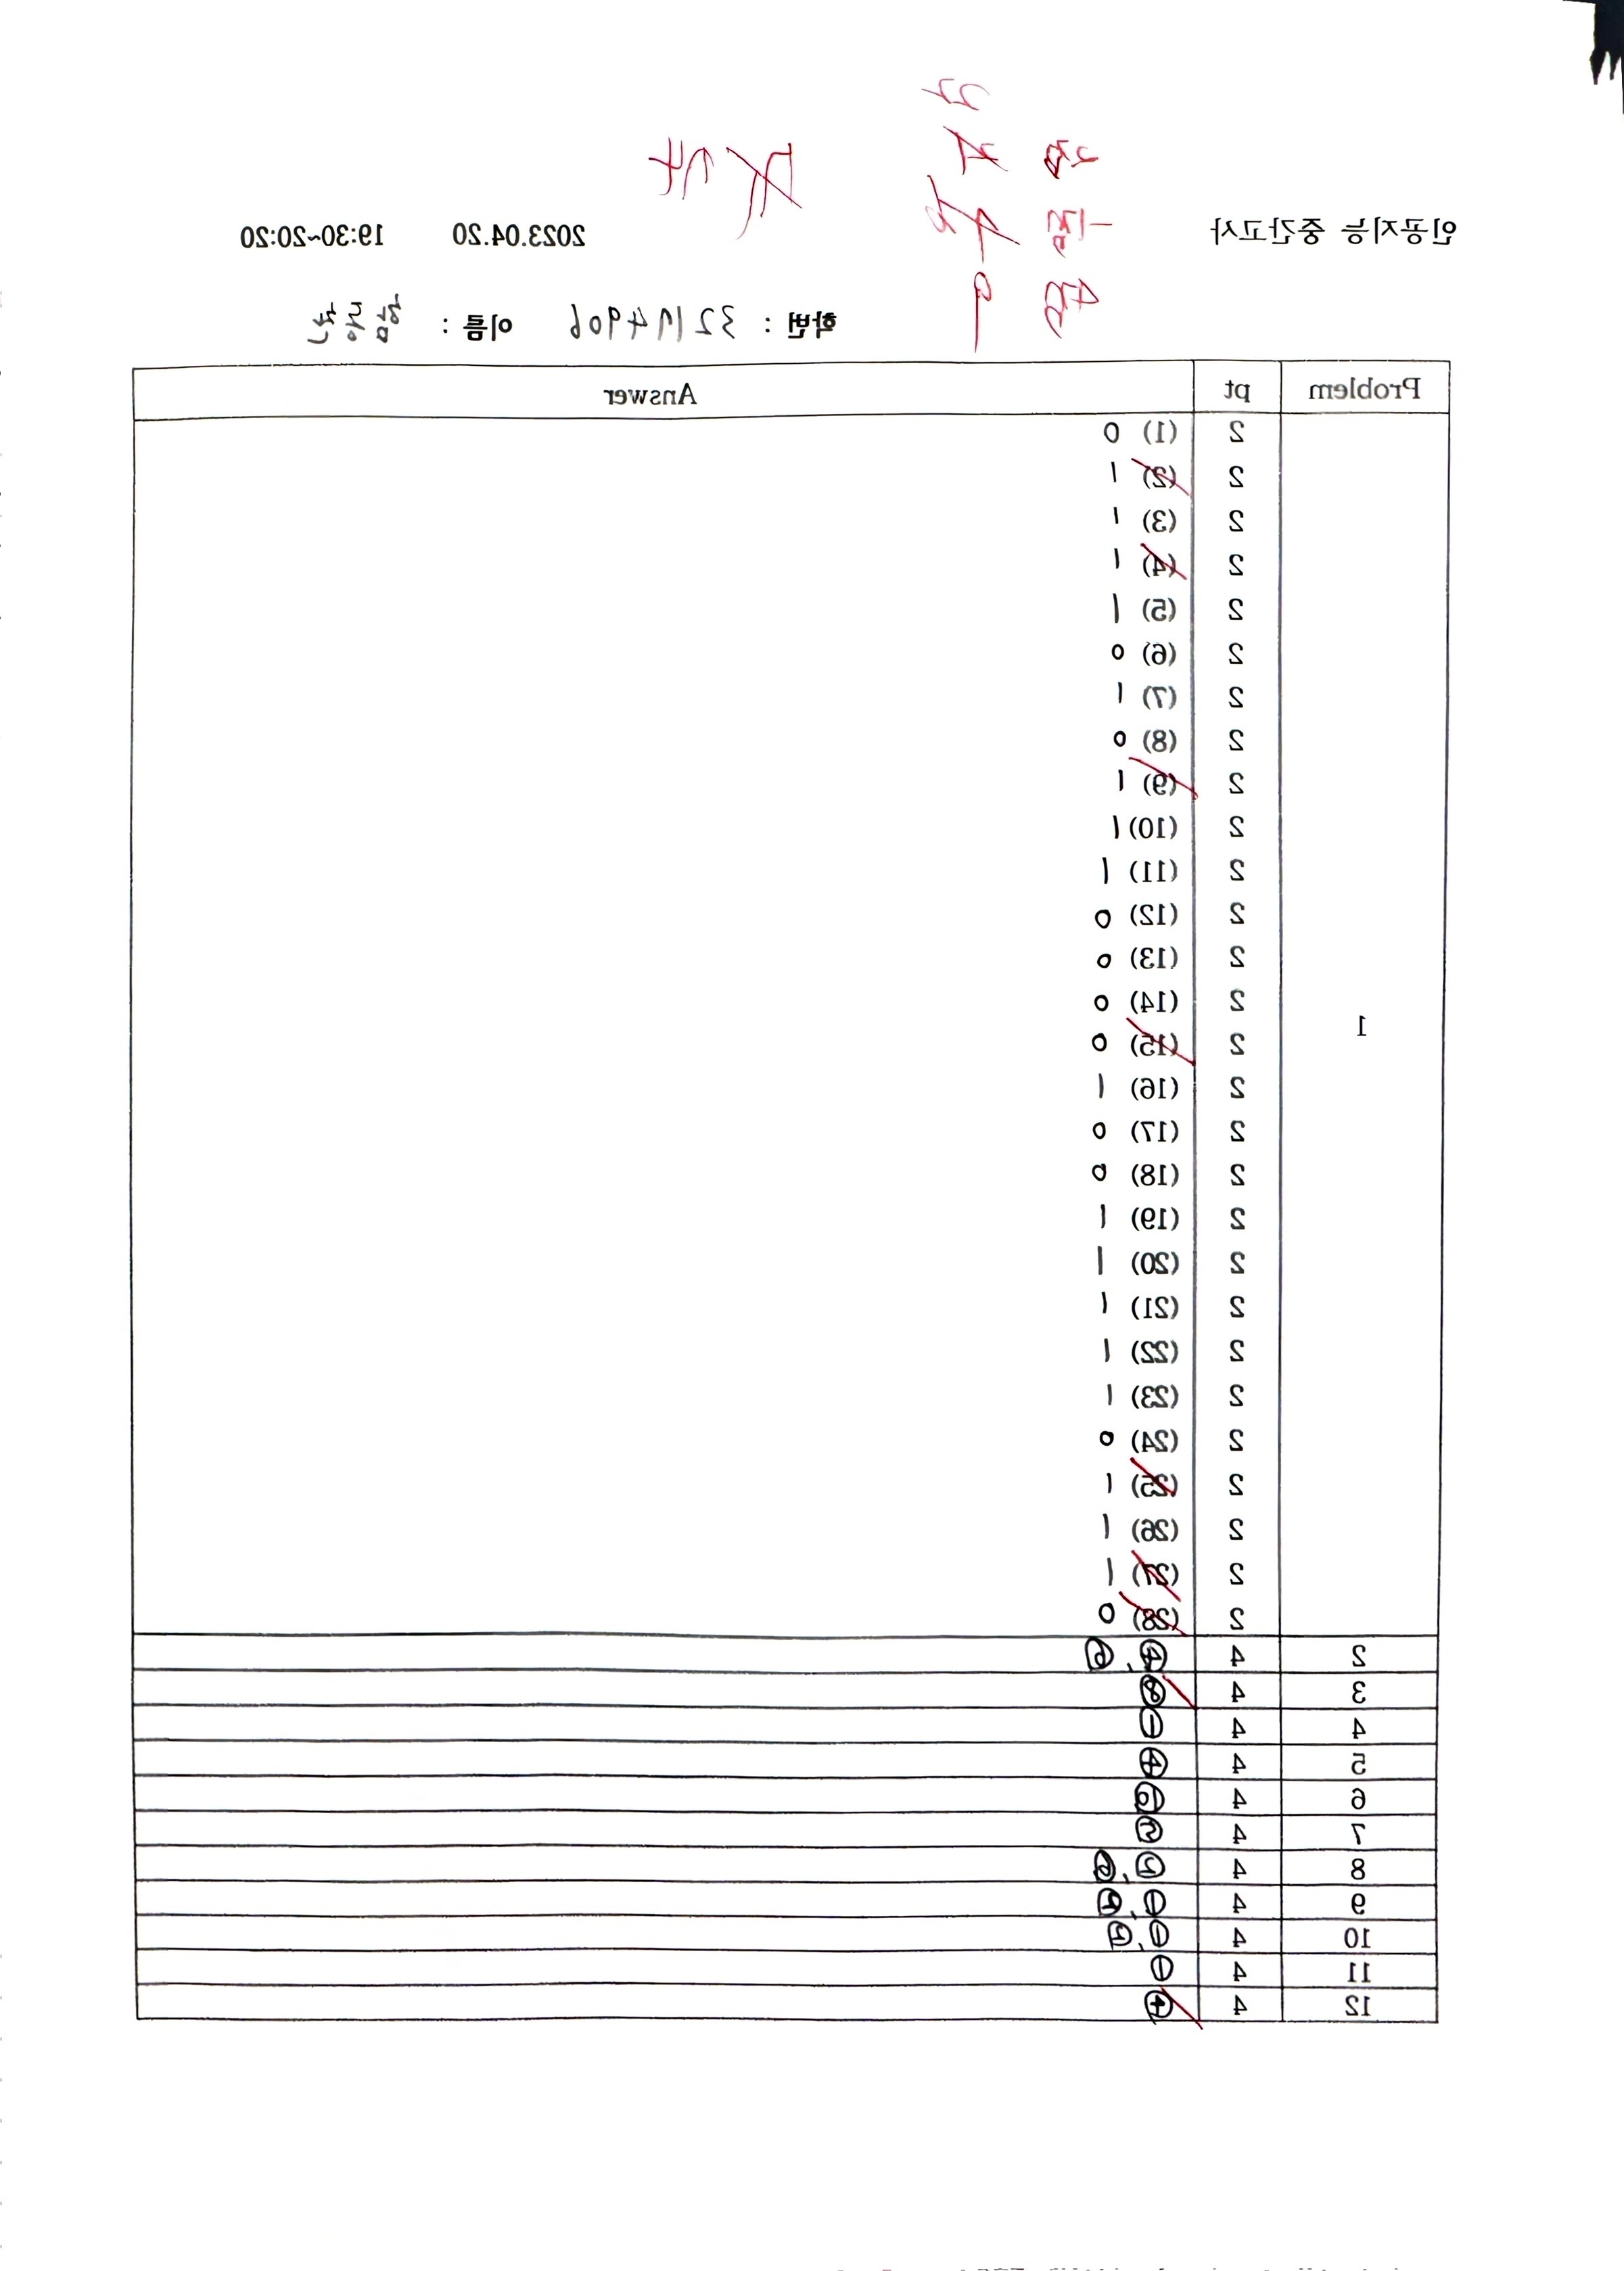 인공지능 중간고사 2023.04.20 19:30~20:20
학번 : 32174906 이름 :
Problem pt Answer
1
2 (1) 0
2 (2) 1
2 (3) 1
2 (4) 1
2 (5) 1
2 (6) 0
2 (7) 1
2 (8) 0
2 (9) 1
2 (10) 1
2 (11) 1
2 (12) 0
2 (13) 0
2 (14) 0
2 (15) 0
2 (16) 1
2 (17) 0
2 (18) 0
2 (19) 1
2 (20) 1
2 (21) 1
2 (22) 1
2 (23) 1
2 (24) 0
2 (25) 1
2 (26) 1
2 (27) 1
2 (28) 0
2 4 ④,
3 4 ⑧
4 4 ①
5 4 ④
6 4
7 4
8 4
9 4 ①,
10 4 ①,
11 4 ①
12 4 ④